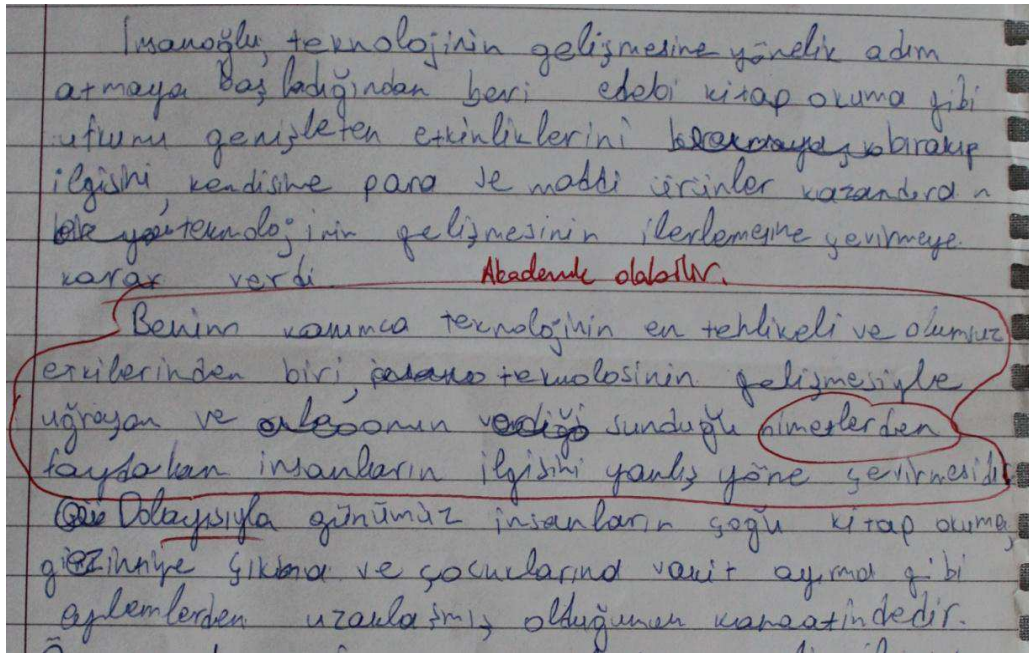 İnsanoğlu, teknolojinin gelişmesine yönelik adım
atmaya başladığından beri edebi kitap okuma gibi
ufkunu genişleten etkinliklerini bırakıp
ilgisini, kendisine para ve maddi ürünler kazandıran
teknolojinin gelişmesinin ilerlemesine çevirmeye
karar verdi.
Akademik olabilir.
Benim kanımca teknolojinin en tehlikeli ve olumsuz
etkilerinden biri, teknolosinin gelişmesiyle
uğraşan ve onun sunduğu himetlerden
faydalan insanların ilgisini yanlış yöne çevirmesidir
Dolayısıyla günümüz insanların çoğu kitap okuma,
gezintiye çıkma ve çocuklarına vakit ayırma gibi
eylemlerden uzaklaşmış olduğunun kanaatindedir.